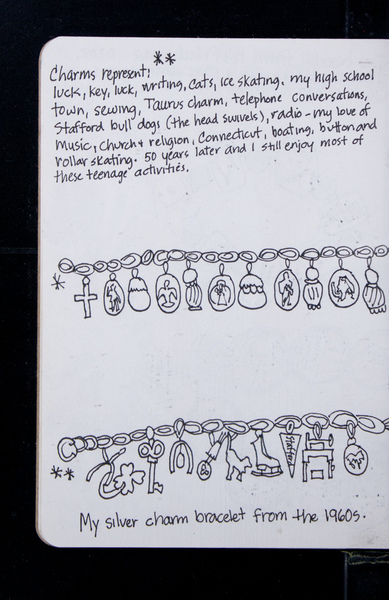 **
Charms represent:
luck, key, luck, writing, cats, ice skating, my high school
town, sewing, Taurus charm, telephone conversations,
Stafford bull dogs (the head swivels), radio - my love of
music, church & religion, Connecticut, boating, button and
rollar skating. 50 years later and I still enjoy most of
these teenage activities.
*
**
Stafford
My silver charm bracelet from the 1960s.